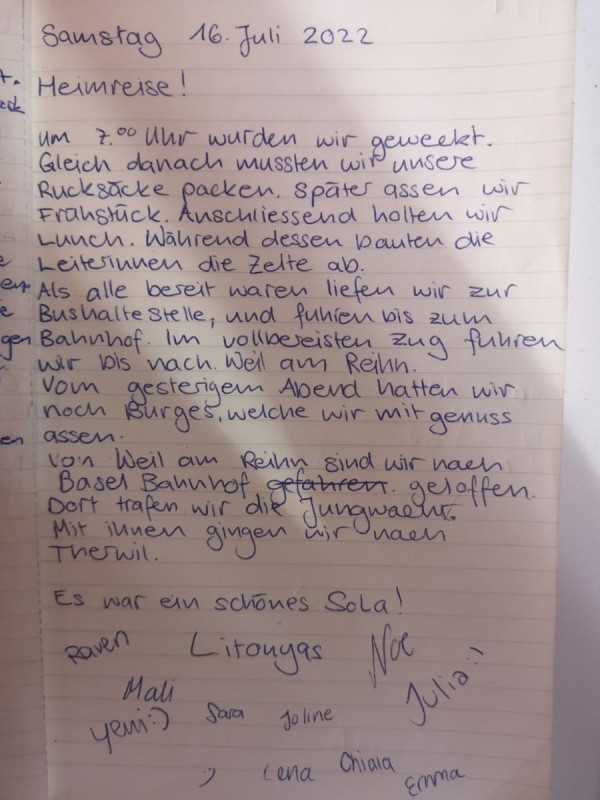 Samstag 16. Juli 2022
Heimreise!
um 7.00 Uhr wurden wir geweckt.
Gleich danach mussten wir unsere
Rucksäcke packen. Später assen wir
Frühstück. Anschliessend holten wir
Lunch. Während dessen bauten die
Leiterinnen die Zelte ab.
Als alle bereit waren liefen wir zur
Bushalte Stelle, und fuhren bis zum
Bahnhof. Im vollbereisten Zug fuhren
wir bis nach. Weil am Reihn.
Vom gesterigem Abend hatten wir
noch Burges, welche wir mit genuss
assen.
Von Weil am Reihn sind wir nach
Basel Bahnhof gefahren. geloffen.
Dort trafen wir die Jungwacht.
Mit ihnen gingen wir nach
Therwil.
Es war ein schönes Sola!
Raven Litonyas Noe
Mali Julia :)
Yemi :) Sara Joline
Lena Chiara Emma